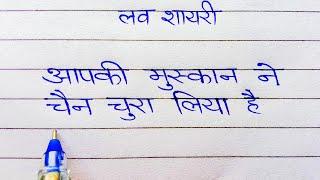 लव शायरी
आपकी मुस्कान ने
चैन चुरा लिया है